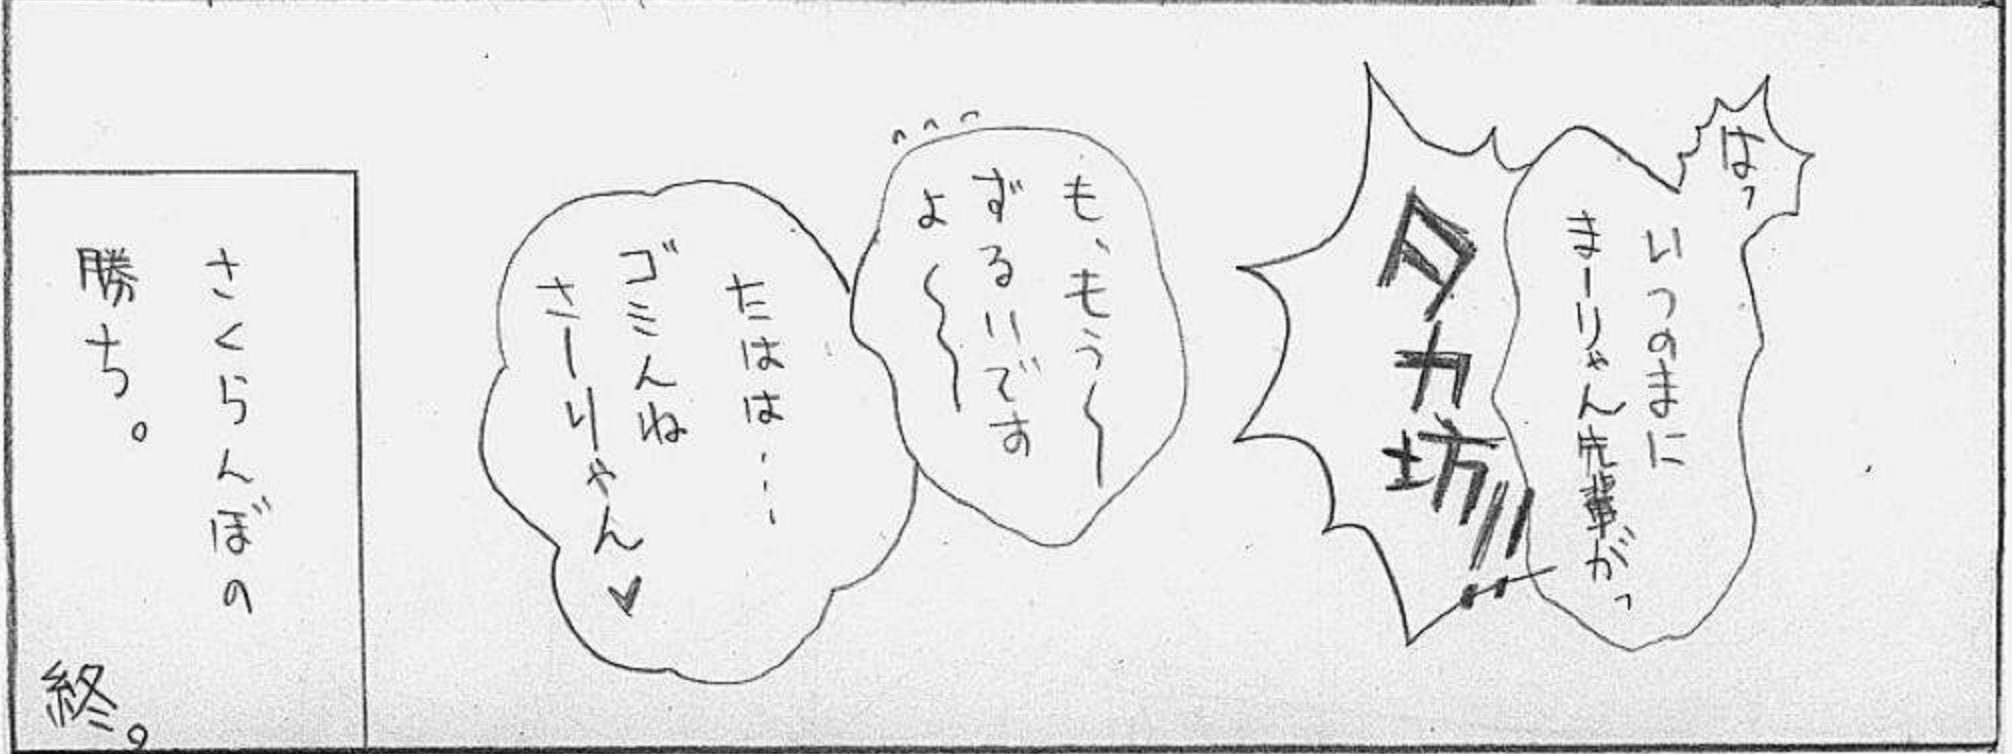 はっ
いつのまに
まーりゃん先輩がっ
タカ坊!!
も、もう〜
ずるいです
よ〜
たはは……
ゴミんね
さーりゃん♥
さくらんぼの
勝ち。
終。